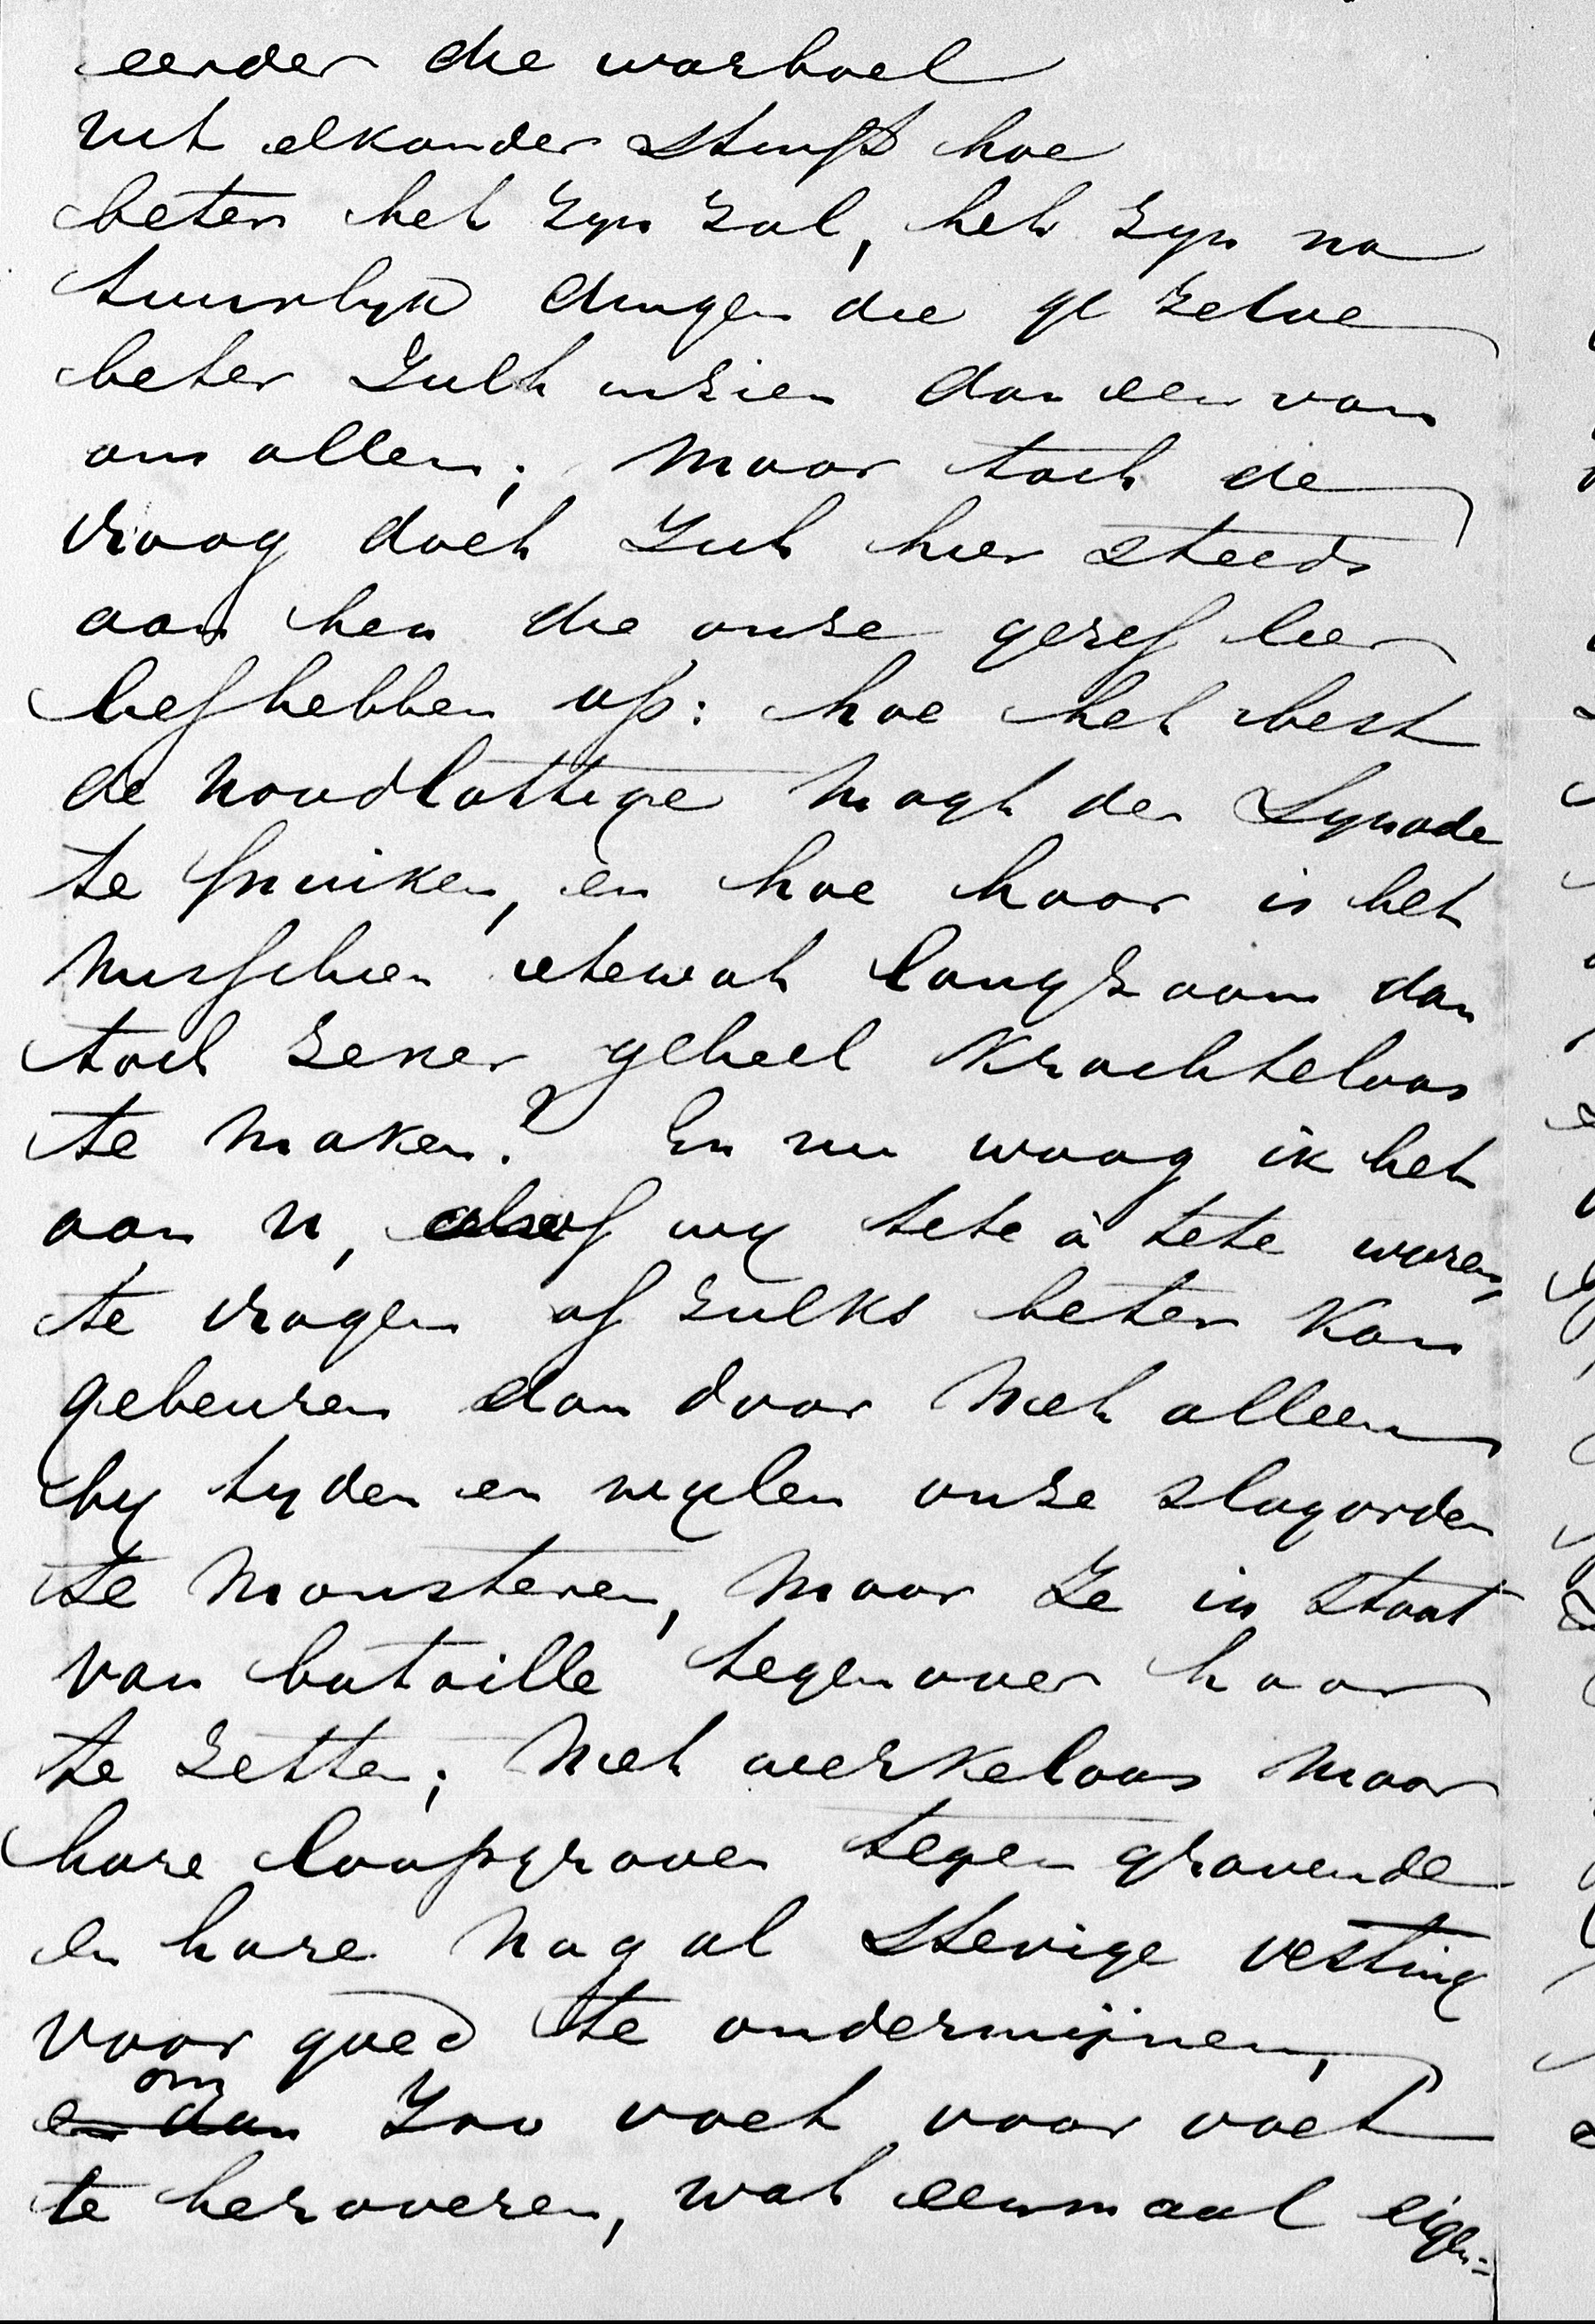 eerder die warboel
uit elkander stuift hoe
beter het zyn zal, het zyn na
tuurlyk dingen die ge zelve
beter zult inzien dan een van
ons allen; maar toch de
vraag doet zich hier steeds
aan hen die onze geref leer
liefhebben op: hoe het best
de noodlottige magt der Synode
te fnuiken, en hoe haar is het
misschien ietewat langzaam dan
toch zeker geheel krachteloos
te maken? En nu waag ik het
aan u, alsof wy tete à tete waren,
te vragen of zulks beter kan
gebeuren dan door niet alleen
by tyden en wylen onze slagorden
te monsteren, maar ze in staat
van bataille tegenover haar
te zetten; niet werkeloos maar
hare loopgraven tegen gravende
en hare nog al stevige vesting
voor goed te ondermijnen,
en dan om zoo voet voor voet
te heroveren, wat eenmaal eigen=